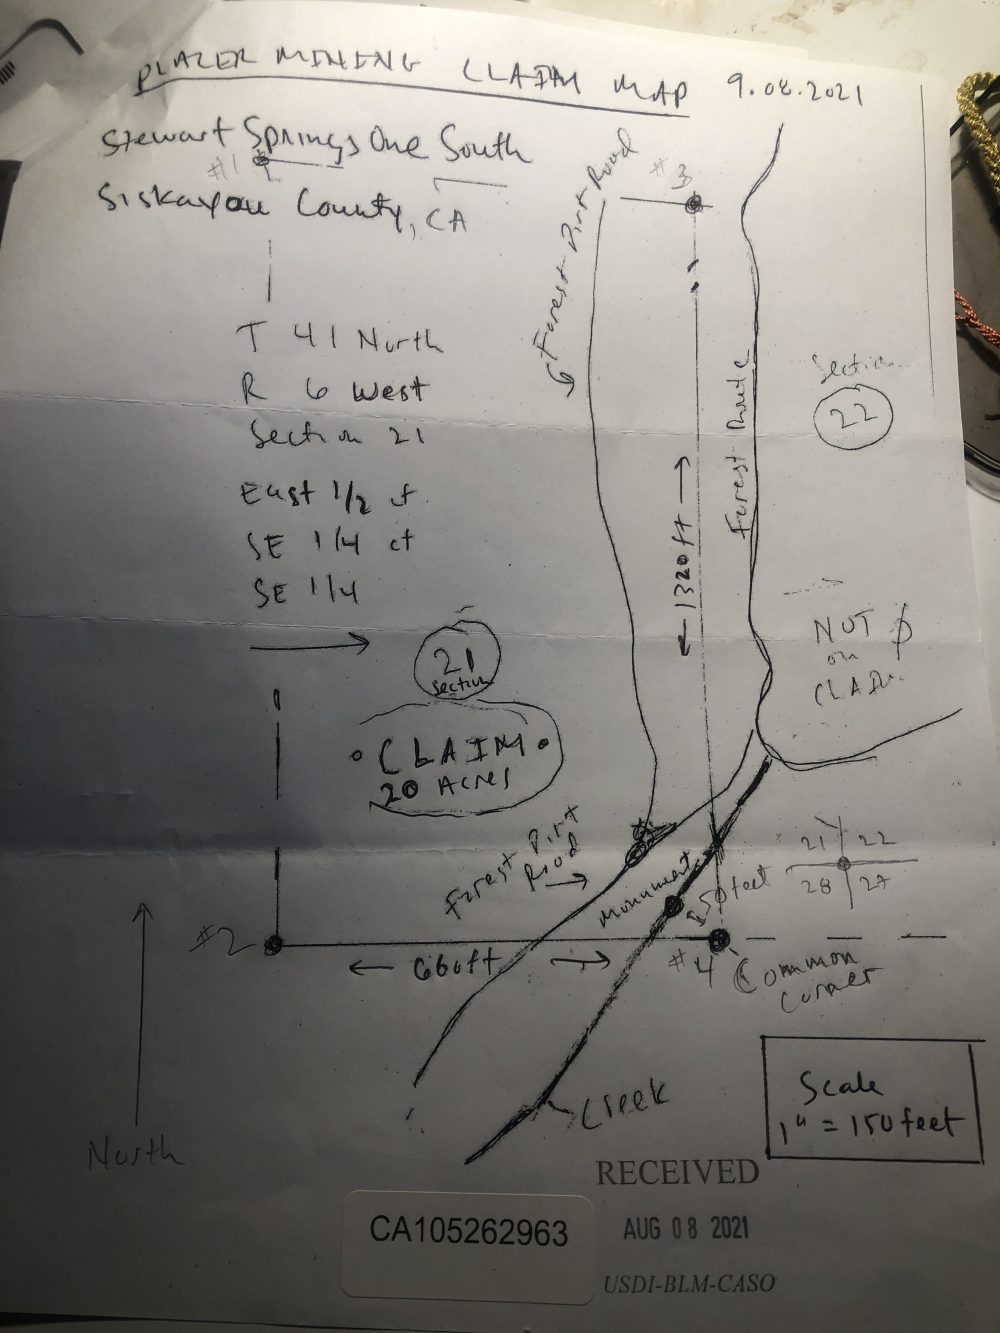 PLACER MINING CLAIM MAP 9.08.2021
Stewart Springs One South
#1
#3
Siskayou County, CA
Forest Dirt Road
T 41 North
R 6 West
Section 21
East 1/2 of
SE 1/4 of
SE 1/4
Forest Route
1320 ft
Section
22
NOT
on
CLAIM
21
Section
CLAIM
20 Acres
Forest Dirt
Road
Monument
150 feet
21 22
28 27
#2
660 ft
#4
Common
Corner
North
Creek
Scale
1" = 150 feet
RECEIVED
AUG 08 2021
USDI-BLM-CASO
CA105262963